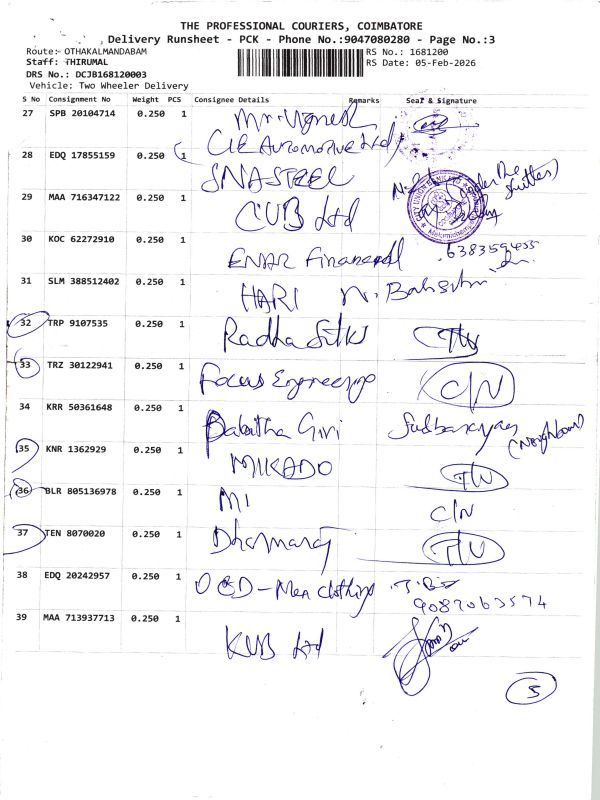 THE PROFESSIONAL COURIERS, COIMBATORE
Delivery Runsheet - PCK - Phone No.:9047080280 - Page No.:3
Route: OTHAKALMANDABAM
RS No.: 1681200
Staff: THIRUMAL
RS Date: 05-Feb-2026
DRS No.: DCJB168120003
Vehicle: Two Wheeler Delivery
S No Consignment No Weight PCS Consignee Details Remarks Seal & Signature
27 SPB 20104714 0.250 1 Mr. Vignesh
CIE Automotive Ltd
28 EDQ 17855159 0.250 1 SNA STEEL
29 MAA 716347122 0.250 1 CUB Ltd
(Under The Shutter)
30 KOC 62272910 0.250 1 ENAR Financial 6383594455
31 SLM 388512402 0.250 1 HARI
32 TRP 9107535 0.250 1 Radha Silks
33 TRZ 30122941 0.250 1 Focus Engineering C/N
34 KRR 50361648 0.250 1 Babitha Giri
(Neighbour)
35 KNR 1362929 0.250 1 MIKADO
36 BLR 805136978 0.250 1 MI C/N
37 TEN 8070020 0.250 1 Dharmaraj
38 EDQ 20242957 0.250 1 OCD-Men Clothing
9087063574
39 MAA 713937713 0.250 1 KVB Ltd